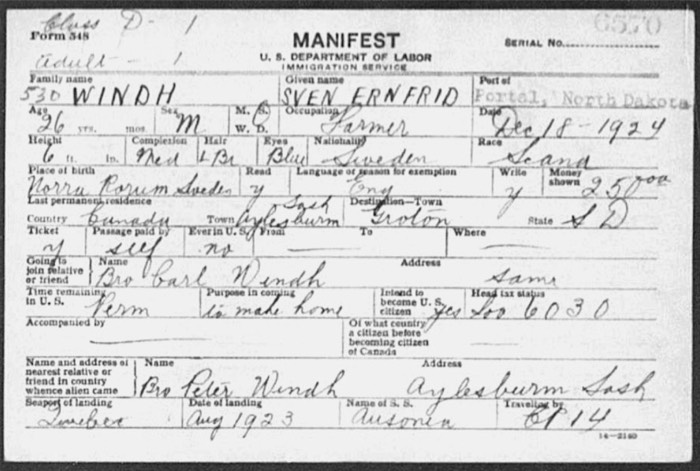 Class D - 1
Form 548
adult - 1
MANIFEST
U. S. DEPARTMENT OF LABOR
IMMIGRATION SERVICE
SERIAL NO. 6570
Family name Given name Port of
530 WINDH SVEN ERNFRID Portal, North Dakota
Age Sex M. S. Occupation Date
26 yrs. mos. M W. D. Farmer Dec 18 - 1924
Height Complexion Hair Eyes Nationality Race
6 ft. in. Med L Br Blue Sweden Scand
Place of birth Read Language or reason for exemption Write Money shown
Norra Rorum Sweden y Eng y 250.00
Last permanent residence Destination—Town
Country Canada Town Aylesburm Sask Groton State S D
Ticket Passage paid by Ever in U. S. From To Where
y self no
Going to join relative or friend Name Address
Bro Carl Windh same
Time remaining in U. S. Purpose in coming Intend to become U. S. citizen Head tax status
Perm to make home Yes Soo 6030
Accompanied by Of what country a citizen before becoming citizen of Canada
Name and address of nearest relative or friend in country whence alien came Name Address
Bro Peter Windh Aylesburm Sask
Seaport of landing Date of landing Name of S. S. Traveling by
Quebec Aug 1923 Ausonia CP 14
14—2140